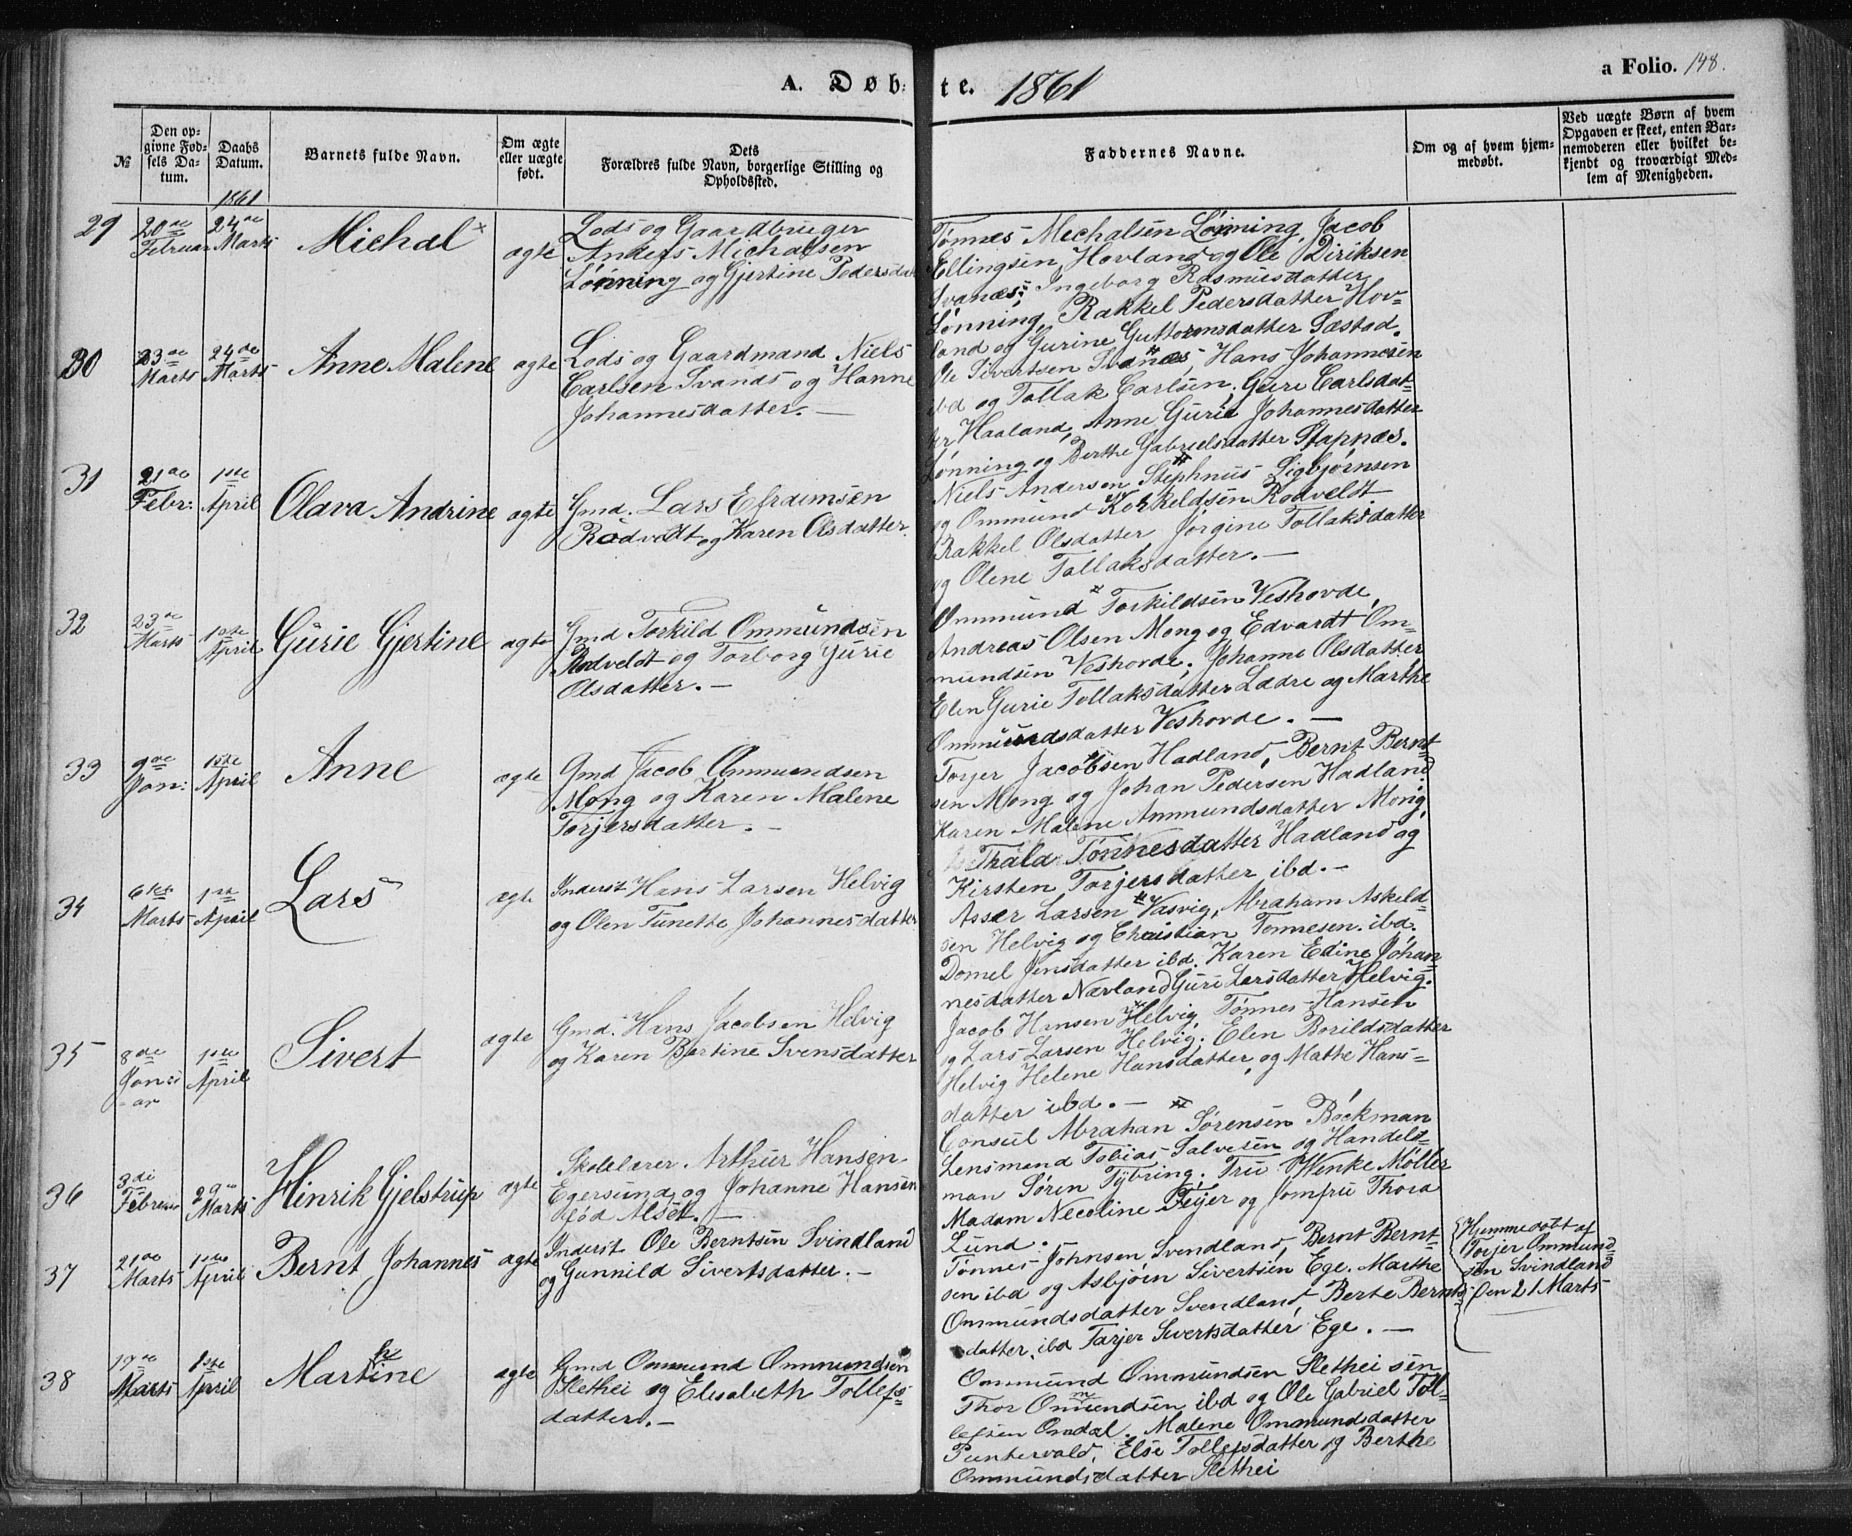 A. Døbte. 1861
a Folio. 148.
№
Den op-
givne Fød-
sels Da-
tum.
Daabs
Datum.
Barnets fulde Navn.
Om ægte
eller uægte
født.
Dets
Forældres fulde Navn, borgerlige Stilling og
Opholdssted.
Faddernes Navne.
Om og af hvem hjem-
medøbt.
Ved uægte Børn af hvem
Opgaven er skeet, enten Bar-
nemoderen eller hvilket be-
kjendt og troværdigt Med-
lem af Menigheden.
1861
29
20de
Februar
24de
Marts
Michal
ægte
Lods og Gaardbruger
Anders Michalsen
Lønning og Gjertine Pedersdat
Tønnes Mechalsen Lønning, Jacob
Ellingsen Hovland og Ole Diriksen
Svanæs; Ingeborg Rasmusdatter
Lønning, Rakkel Pedersdatter Hov-
land og Gurine Guttormsdatter Sæstad.
30
23de
Marts
24de
Marts
Anne Malene
ægte
Lods og Gaardmand Niels
Carlsen Svanæs og Hanne
Johannesdatter. —
Ole Sivertsen Svanæs, Hans Johannesen
ibd og Tollak Carlsen, Guri Carlsdat-
ter Haaland, Anne Gurie Johannesdatter
Lønning og Berthe Gabrielsdatter Stapnæs.
31
21de
Febr:
1ste
April
Olava Andrine
ægte
Gmd. Lars Efraimsen
Rodveldt og Karen Olsdatter
Niels Andersen Stephnus Sigbjørnsen
og Ommund Korkeldsen Rodveldt
Rakkel Olsdatter Jorgine Tollaksdatter
og Olene Tollaksdatter. —
32
23de
Marts
1ste
April
Gurie Gjertine
ægte
Gmd Torkild Ommundsen
Rodveldt og Torborg Gurie
Olsdatter. —
Ommund Torkildsen Veshovde,
Andreas Olsen Mong og Edvardt Om-
mundsen Veshovde; Johanne Olsdatter
Elen Gurie Tollaksdatter Ladre og Marthe
Ommundsdatter Veshovde. —
33
9de
Jan:
1ste
April
Anne
ægte
Gmd Jacob Ommundsen
Mong og Karen Malene
Torjersdatter. —
Torjer Jacobsen Hadland, Bernt Bernt-
sen Mong og Johan Pedersen Hadland
Karen Malene Ammundsdatter Mong,
Thala Tønnesdatter Hadland og
Kirsten Torjersdatter ibd. —
34
6te
Marts
1ste
April
Lars
ægte
Inderst Hans Larsen Helvig
og Olen Tunette Johannesdatter
Asser Larsen Vasvig, Abraham Askild-
sen Helvig og Christian Tonnesen ibd.
Domel Jensdatter ibd. Karen Edine Johan-
nesdatter Nævland Guri Larsdatter Helvig.
35
8de
Janu-
ar
1ste
April
Sivert
ægte
Gmd. Hans Jacobsen Helvig
og Karen Bertine Svensdatter
Jacob Hansen Helvig, Tønnes Hansen
og Lars Larsen Helvig; Elen Borildsdatter
Helvig Helene Hansdatter, og Mathe Hans-
datter ibd. —
36
3di
Februar
29de
Marts
Hinrik Gjelstrup
ægte
Skolelærer Arthur Hansen
Egersund og Johanne Hansen
fød Alset. —
Consul Abrahan Sørensen Bøckman
Lensmand Tobias Salvesen og Handels-
man Søren Tybring. Fru Wenke Møller
Madam Necoline Feyer og Jomfru Thora
Lund.
37
21de
Marts
1ste
April
Bernt Johannes
ægte
Inderst Ole Berntsen Svindland
og Gunnild Sivertsdatter. —
Tønnes Johnsen Svendland, Bernt Bernt-
sen ibd og Asbjørn Sivertsen Ege. Marthe
Ommundsdatter Svendland, Berte Bernts-
datter ibd Tarjer Sivertsdatter Ege. —
Hjemmedøbt af
Torjer Ommund-
sen Svindland
den 21 Marts
38
17de
Marts
1ste
April
Marthine
ægte
Gmd Ommund Ommundsen
Slethei og Elisabeth Tollefs-
datter. —
Ommund Ommundsen Slethei sen
Thor Ommundsen ibd og Ole Gabriel Tol-
lefsen Omdal. Malene Ommundsdatter
Puntervold, Else Tollefsdatter og Berthe
Ommundsdatter Slethei